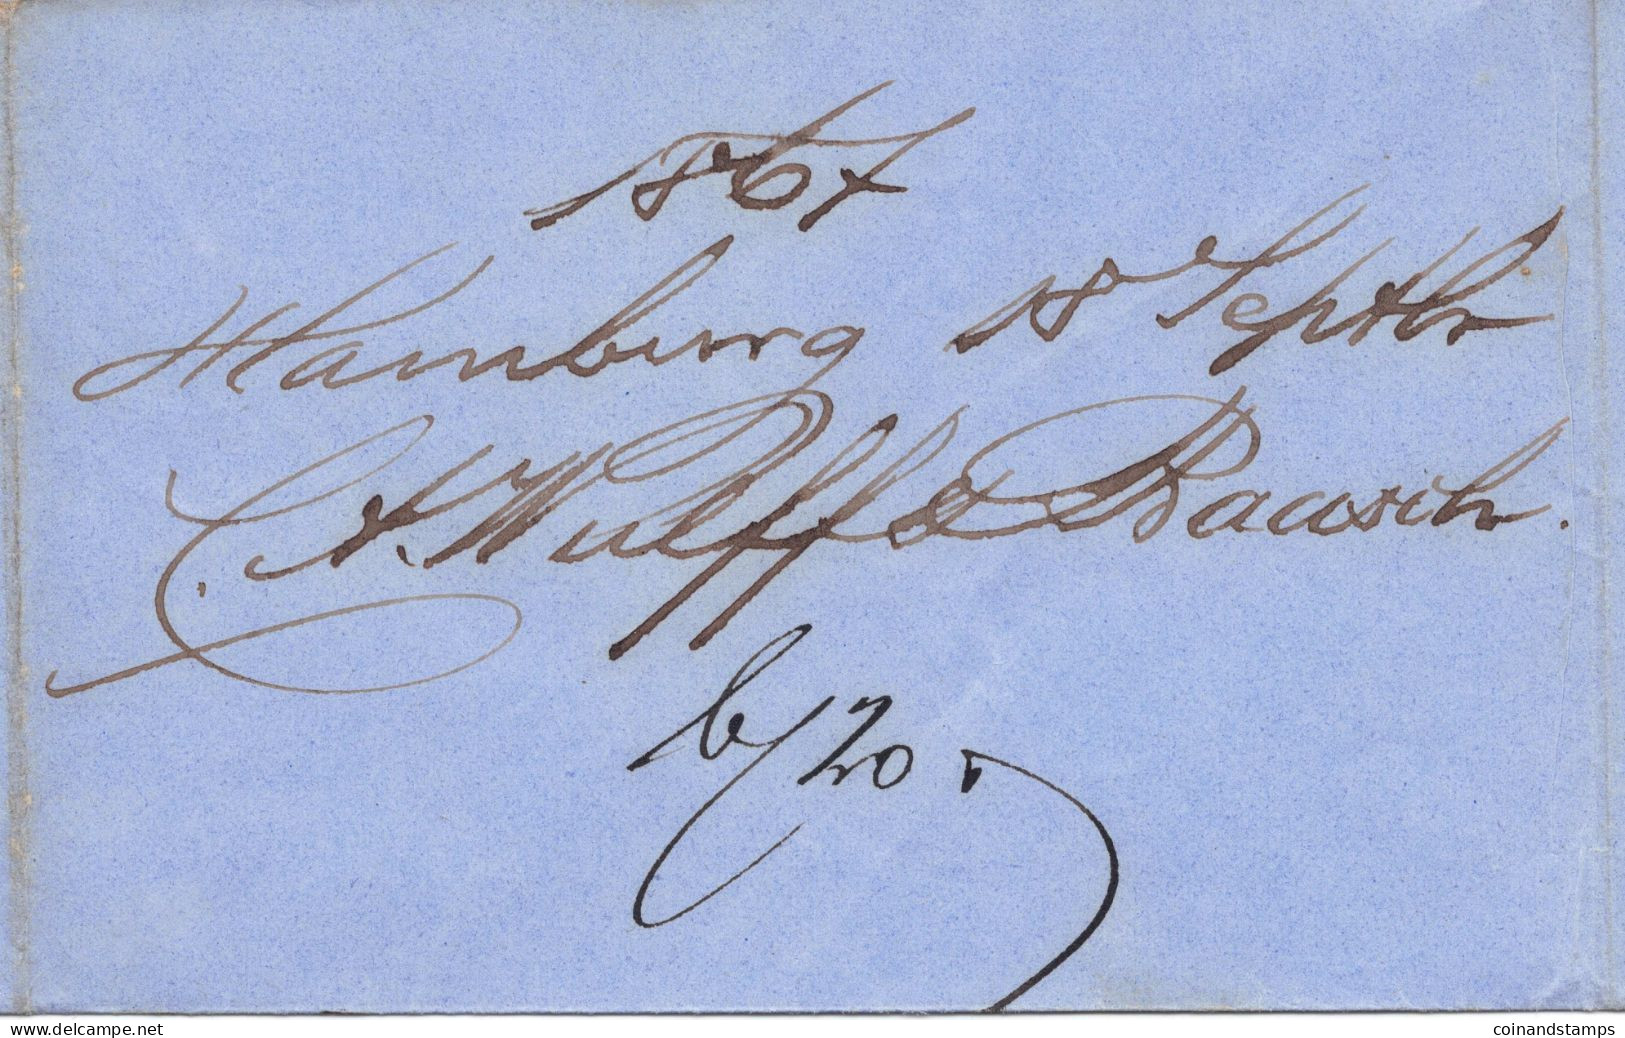 1867
Hamburg 18 Septbr
C. A. Wulff & Rausch.
b/20
www.delcampe.net
coinandstamps